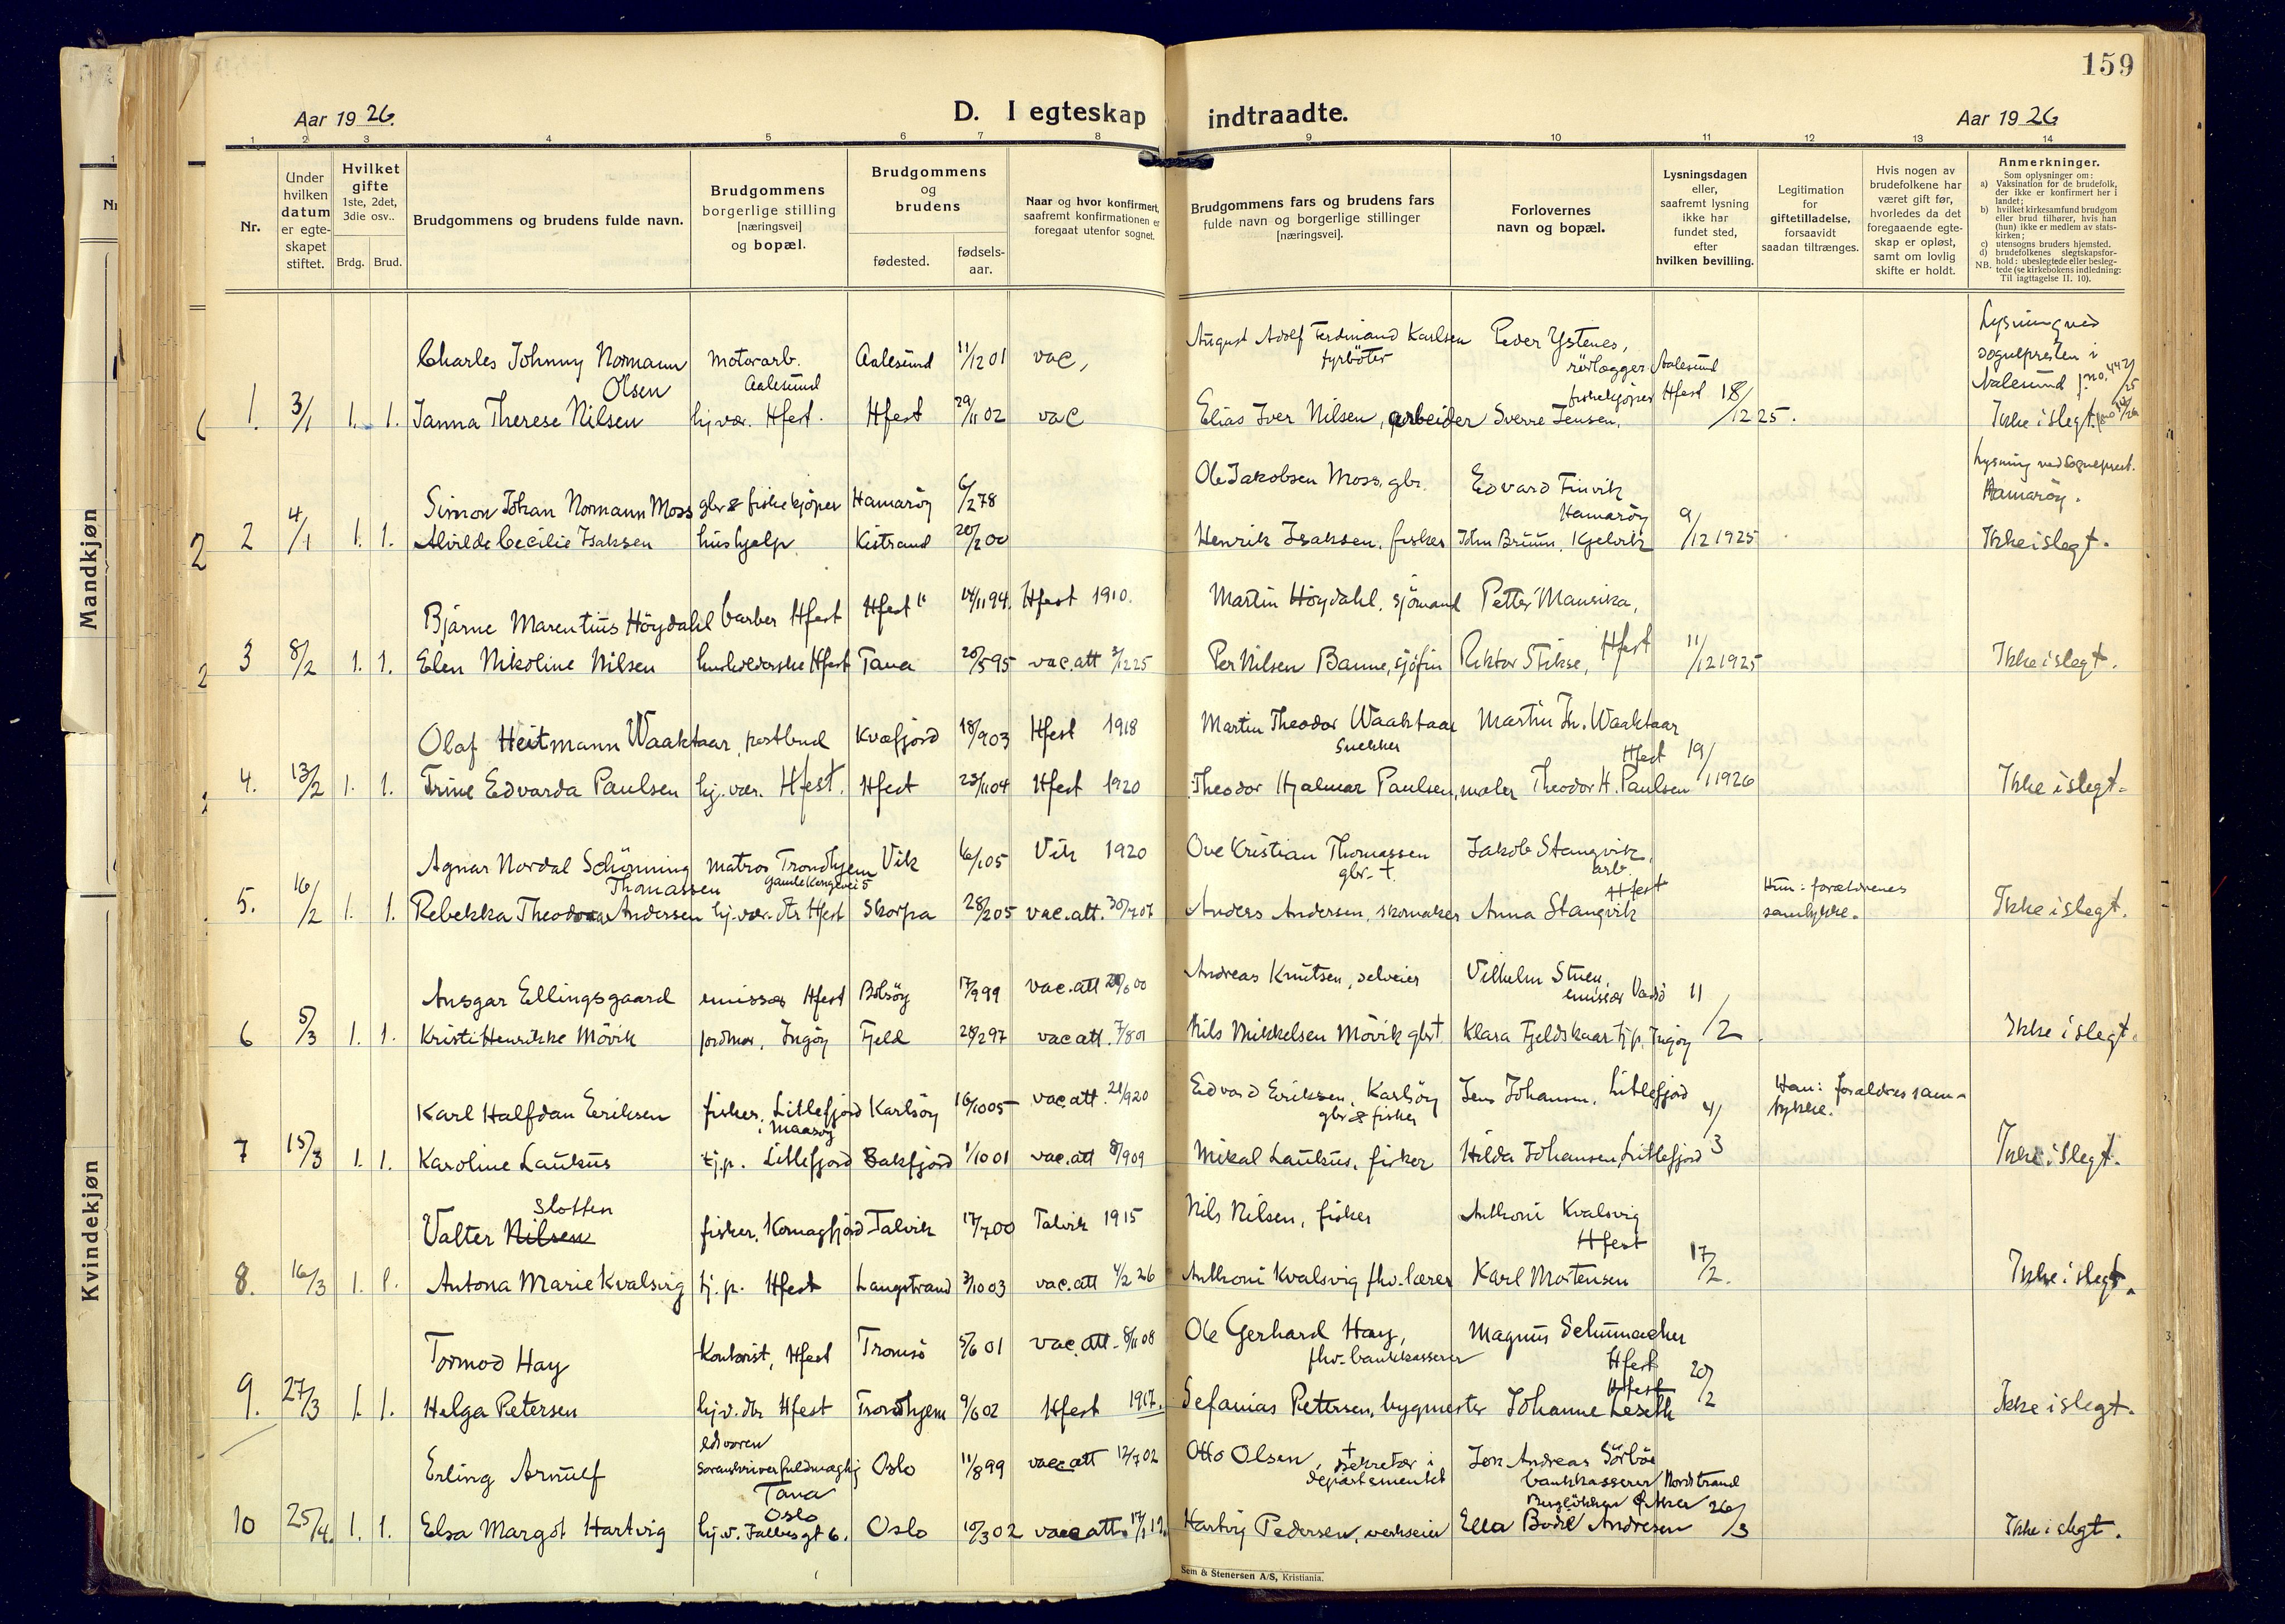 159
Aar 1926.
D. I egteskap indtraadte.
Aar 1926
1 2 3 4 5 6 7 8 9 10 11 12 13 14
Nr.
Under hvilken datum er egteskapet stiftet.
Hvilket gifte 1ste, 2det, 3die osv..
Brdg. Brud.
Brudgommens og brudens fulde navn.
Brudgommens borgerlige stilling [næringsvei] og bopæl.
Brudgommens og brudens
fødested.
fødsels-aar.
Naar og hvor konfirmert, saafremt konfirmationen er foregaat utenfor sognet.
Brudgommens fars og brudens fars fulde navn og borgerlige stillinger [næringsvei].
Forlovernes navn og bopæl.
Lysningsdagen eller, saafremt lysning ikke har fundet sted, efter hvilken bevilling.
Legitimation for giftetilladelse, forsaavidt saadan tiltrænges.
Hvis nogen av brudefolkene har været gift før, hvorledes da det foregaaende egteskap er opløst, samt om lovlig skifte er holdt.
Anmerkninger.
Som oplysninger om:
a) Vaksination for de brudefolk, der ikke er konfirmert her i landet;
b) hvilket kirkesamfund brudgom eller brud tilhører, hvis han (hun) ikke er medlem av statskirken;
c) utensogns bruders hjemsted.
d) brudefolkenes slegtskapsforhold: ubeslegtede eller beslegtede (se kirkebokens indledning: Til iagttagelse II. 10).
NB.
Mandkjøn
Kvindekjøn
Charles Johnny Normann Olsen motorarb. Aalesund Aalesund 11/12 01 vac, August Adolf Ferdinand Karlsen fyrböter Peder Ystenes, rörlægger Aalesund Lysning ved sognepresten i Aalesund
1. 3/1 1. 1. Janna Therese Nilsen hj.vær. Hfest. Hfest 29/11 02 vac Elias Iver Nilsen, arbeider fiskekjøper Hfest Sverre Jensen. 18/12 25. Ikke i slegt.
Simon Johan Normann Moss gbr & fiskekjöper Hamaröy 6/2 78 Ole Jakobsen Moss, gbr. Edvard Finvik Hamaröy Lysning ved Sogneprest. Hamaröy.
2 4/1 1. 1. Alvilde Cecilie Isaksen hushjelp Kistrand 20/2 00 Henrik Isaksen, fisker John Bruun, Kjelvik 9/12 1925 Ikke i slegt.
Bjarne Marentius Höydahl barber Hfest Hfest 14/11 94. Hfest 1910. Martin Höydahl, sjömand Petter Mausika,
3 8/2 1. 1. Elen Nikoline Nilsen husholderske Hfest Tana 20/5 95 vac. att 3/12 25 Per Nilsen Banne, sjöfin Riktor Stikse, Hfest 11/12 1925 Ikke i slegt.
Olaf Heitmann Waaktaar, postbud Kvæfjord 18/9 03 Hfest 1918 Martin Theodor Waaktaar Snekker Martin Th. Waaktaar Hfest
4. 13/2 1. 1. Trine Edvarda Paulsen hj.vær. Hfest. Hfest 23/11 04 Hfest 1920 Theodor Hjalmar Paulsen, maler Theodor H. Paulsen 19/1 1926 Ikke i slegt.
Agnar Nordal Schönning Thomassen matros Trondhjem Gamle Kongevei 5 Vik 6/1 05 Vik 1920 Ove Kristian Thomassen gbr. † Jakob Stangvik, arb. Hfest
5. 16/2 1. 1. Rebekka Theodora Andersen hj.vær. dtr Hfest Skorpa 28/2 05 vac. att. 30/7 07 Anders Andersen, skomaker Anna Stangvik Hun: forældrenes samtykke. Ikke i slegt.
Ansgar Ellingsgaard emissær Hfest Bolsöy 17/9 99 vac. att Andreas Knutsen, selveier Vilhelm Stuen, emissær Vadsö
6 5/3 1. 1. Kristi Henrikke Mövik jordmor, Ingöy Fjeld 28/2 97 vac att. 7/8 01 Nils Mikkelsen Mövik gbr † Klara Fjeldskaar tj.p. Ingöy 11/2 Ikke i slegt.
Karl Halfdan Eriksen fisker, Litlefjord i Maasöy Karlsöy 16/10 05 vac att. 21/9 20 Edvard Eriksen, Karlsöy gbr & fisker Jens Johansen, Litlefjord Han: forældres samtykke.
7 15/3 1. 1. Karoline Laukus tj.p. Litlefjord Bakfjord 1/10 01 vac. att 8/9 09 Mikal Laukus, fisker Hilda Johansen, Litlefjord 4/3 Ikke i slegt.
Slotten
Valter Nilsen fisker, Komagfjord Talvik 17/7 00 Talvik 1915 Nils Nilsen, fisker Anthoni Kvalsvig Hfest
8. 16/3 1. 1. Antona Marie Kvalsvig tj.p. Hfest Langstrand 3/10 03 vac. att 4/2 26 Anthoni Kvalsvig fhv. lærer Karl Mortensen 17/2. Ikke i slegt.
Tormod Hay Kontorist, Hfest Tromsö 5/6 01 vac. att. 8/11 08 Ole Gerhard Hay, fhv. bankkasserer Magnus Schumacher Hfest
9. 27/3 1. 1. Helga Petersen hj.v. dtr Hfest Trondhjem 9/6 02 Hfest 1917. Sefanias Pettersen, bygmester Hfest Johanne Leseth 20/2 Ikke i slegt.
Erling Arnulf edsvoren Sorenskriverfuldmægtig Tana Oslo 11/8 99 vacc att 12/7 02 Otto Olsen, † sekretær i departementet Jon Andreas Sörböe bankkasserer Nordstrand
10 25/4. 1. 1. Elsa Margot Hartvig Oslo hj.v. Falbesgt 6. Oslo 15/3 02 vacc att. Hartvig Pedersen, verkseier Ella Bodil Andresen 26/3 Ikke i slegt.
Sem & Stenersen A/S, Kristiania.